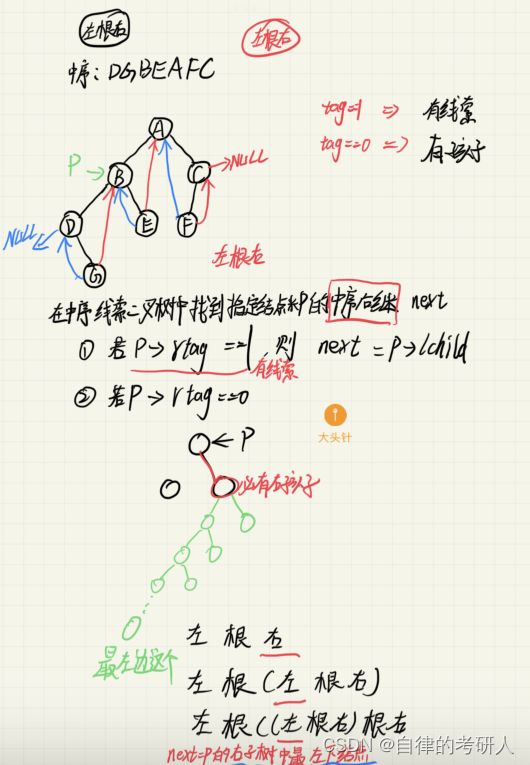 左根右
左根右
中序:DGBEAFC
tag=1 => 有线索
tag==0 => 有孩子
A
P
B
C
NULL
D
E
F
NULL
G
左根右
在中序线索二叉树中找到指定结点*P的中序后继 next
① 若P->rtag==1,则 next=P->lchild
有线索
② 若P->rtag==0
大头针
P
必有右孩子
最左边这个
左 根 右
左 根 (左 根 右)
左 根 ((左 根 右) 根 右
CSDN @自律的考研人
next=P的右子树中最左下结点